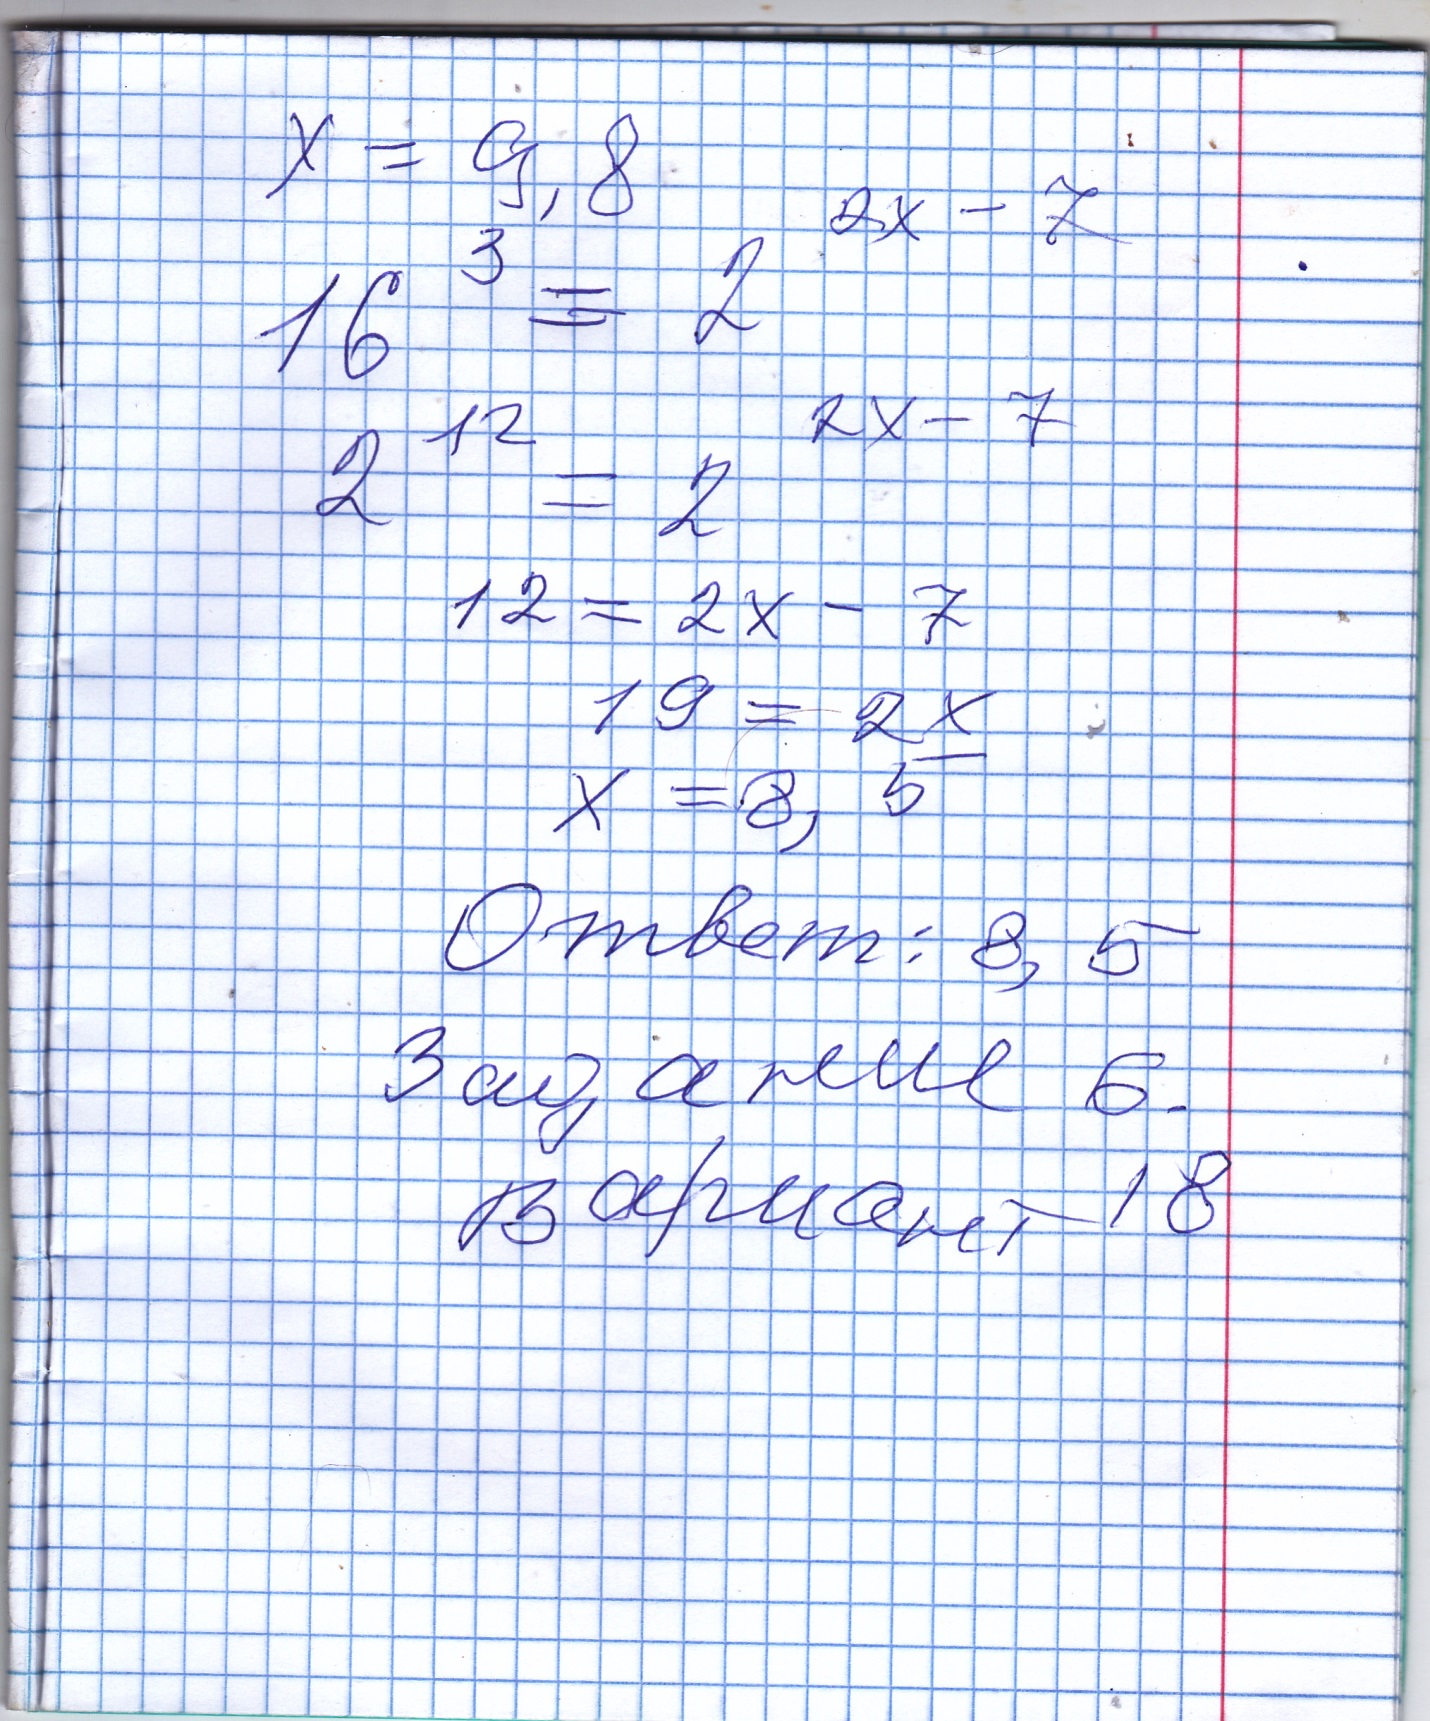 x = 9,8
16³ = 2²ˣ⁻⁷
2¹² = 2²ˣ⁻⁷
12 = 2x - 7
19 = 2x
x = 8,5
Ответ: 8,5
Задание 6.
Вариант 18